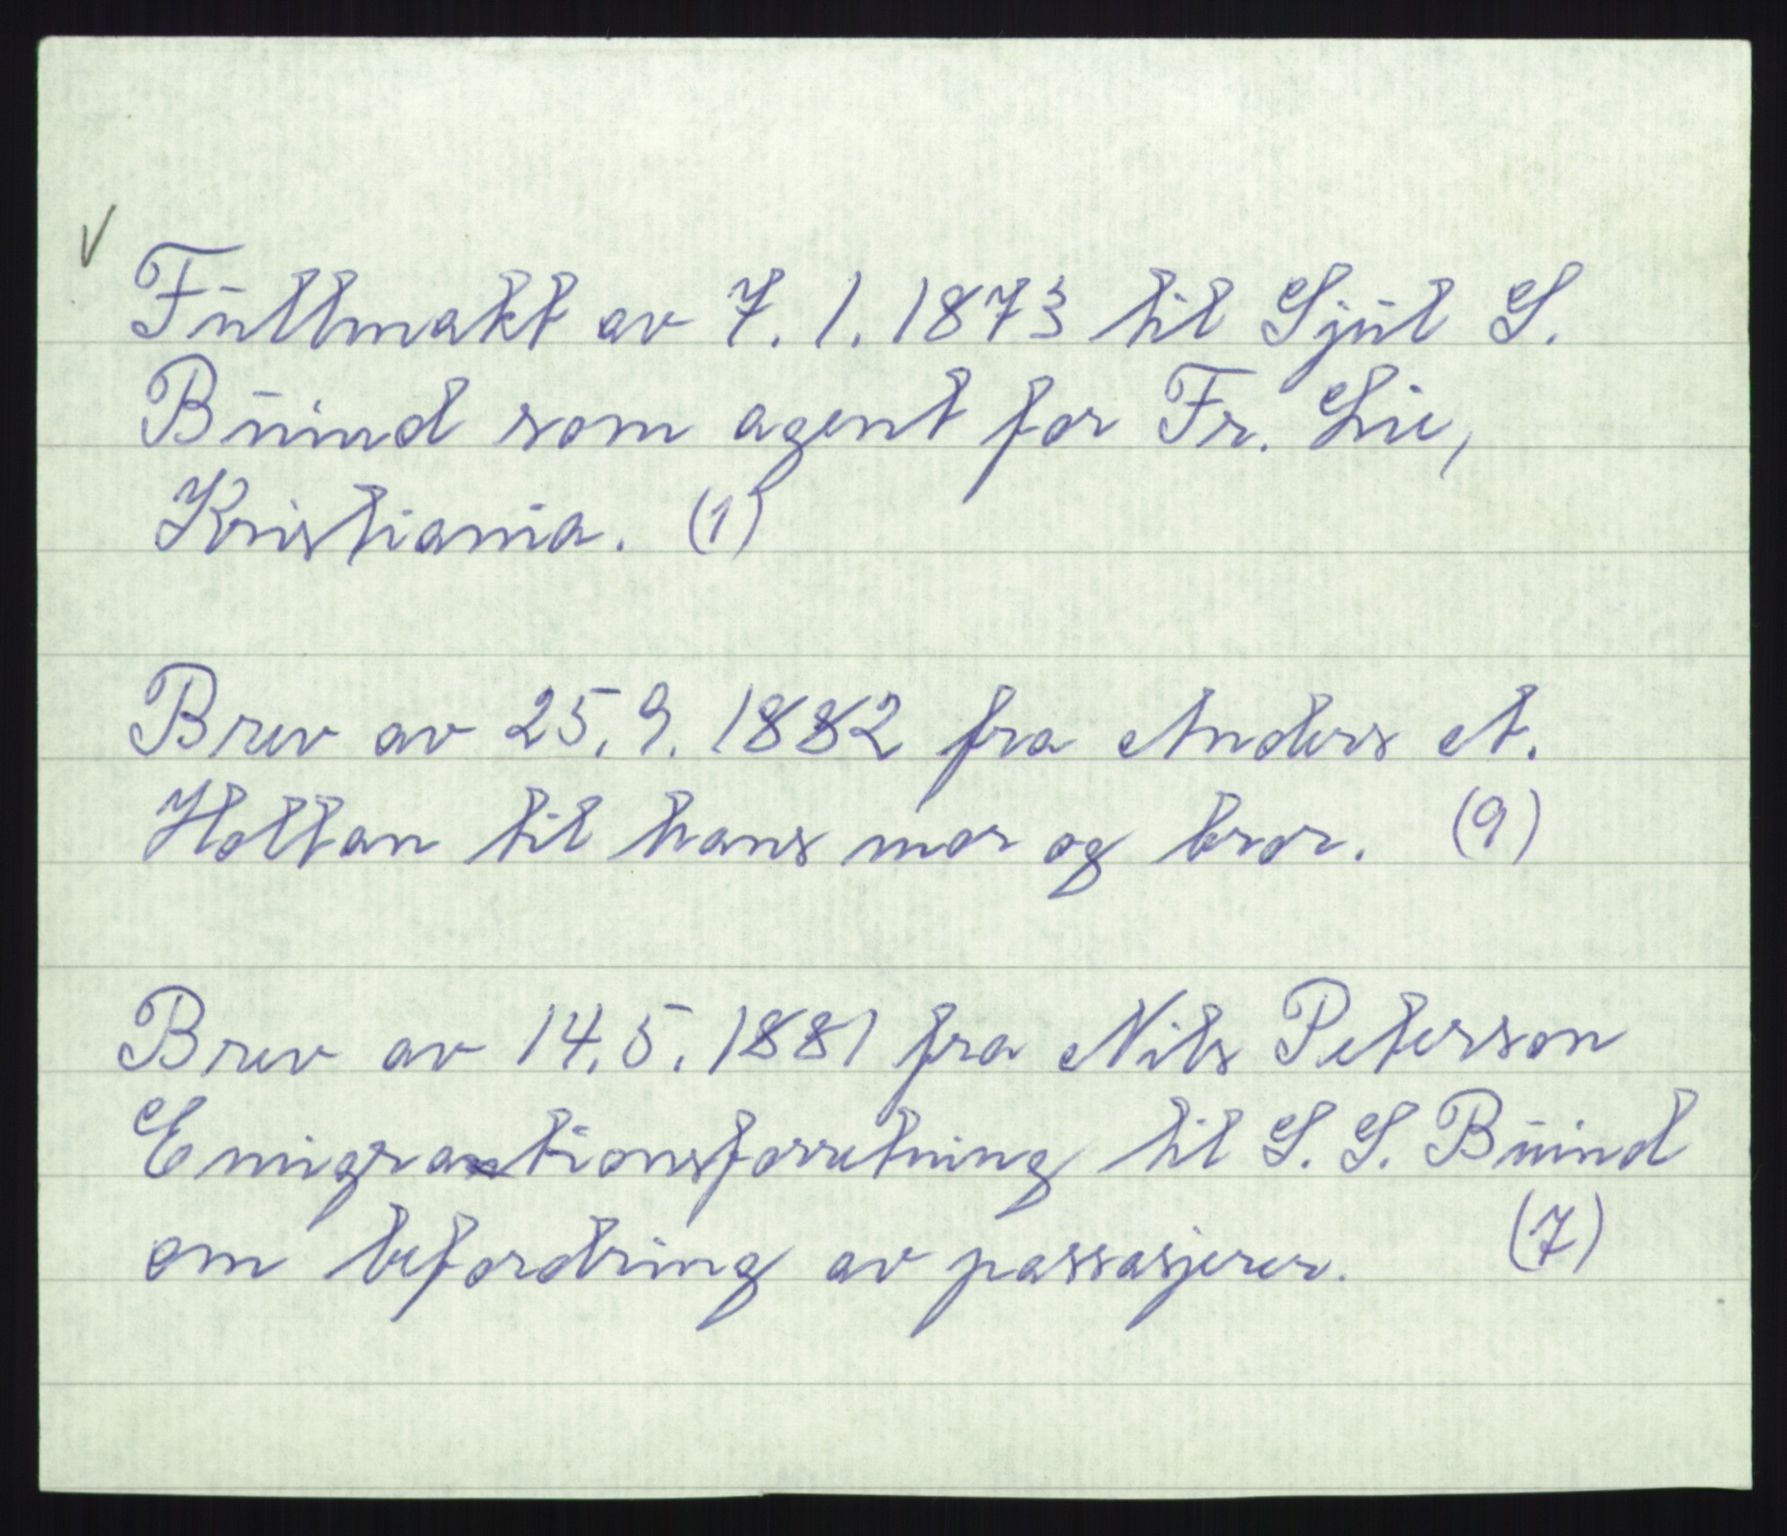 ✓
Fullmakt av 7. 1. 1873 til Sjul S.
Buind som agent for Fr. Lie,
Kristiania. (1)
Brev av 25. 9. 1882 fra Anders A.
Holtan til hans mor og bror. (9)
Brev av 14. 5. 1881 fra Nils Peterson
Emigrationsforretning til S. S. Buind
om befordring av passasjerer. (7)